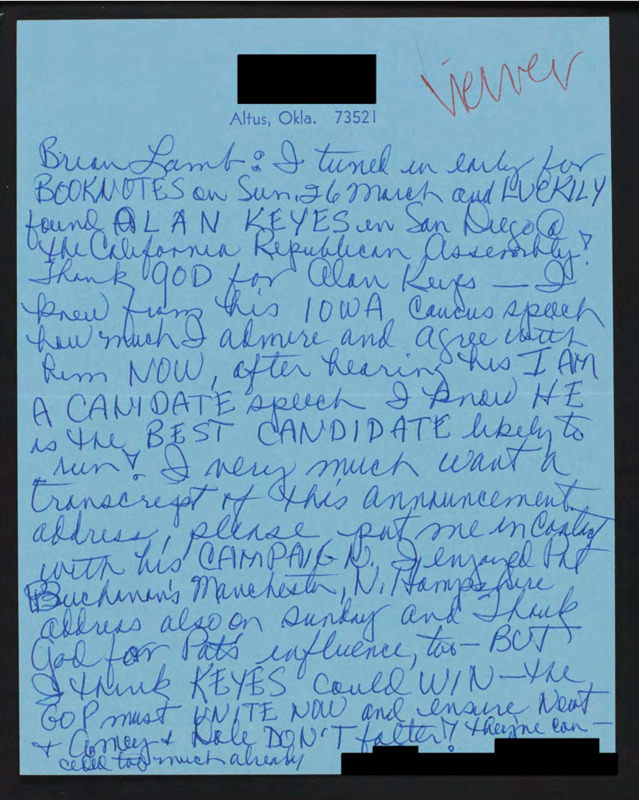 viewer
Altus, Okla. 73521
Brian Lamb: I tuned in early for
BOOKNOTES on Sun. 26 March and LUCKILY
found ALAN KEYES in San Diego @
the California Republican Assembly!
Thank GOD for Alan Keyes — I
knew from his IOWA Caucus speech
how much I admire and agree with
him NOW, after hearing his I AM
A CANIDATE speech I know HE
is the BEST CANDIDATE likely to
run! I very much want a
transcript of this announcement
address, please put me in contact
with his CAMPAIGN. I enjoyed Pat
Buchanan's Manchester, N. Hampshire
address also on Sunday and Thank
God for Pat's influence, too — BUT
I think KEYES could WIN — the
GOP must UNITE NOW and ensure Newt
+ Armey + Dole DON'T falter! they've con-
ceded too much already